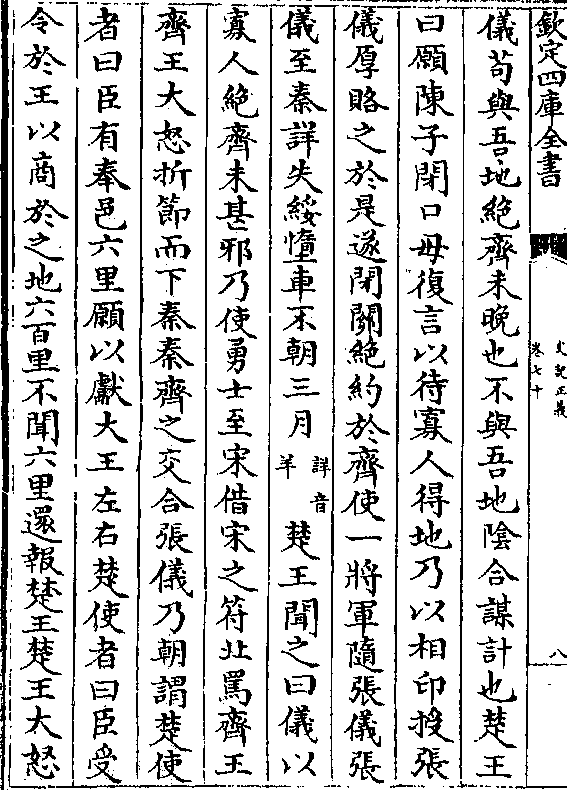 欽定四庫全書
史記正義
卷七十
八
儀苟與吾地絶齊未晚也不與吾地陰合謀計也楚王
曰願陳子閉口毋復言以待寡人得地乃以相印授張
儀厚賂之於是遂閉關絶約於齊使一將軍隨張儀張
儀至秦詳失綏墮車不朝三月詳音羊楚王聞之曰儀以
寡人絶齊未甚邪乃使勇士至宋借宋之符北罵齊王
齊王大怒折節而下秦秦齊之交合張儀乃朝謂楚使
者曰臣有奉邑六里願以獻大王左右楚使者曰臣受
令於王以商於之地六百里不聞六里還報楚王楚王大怒